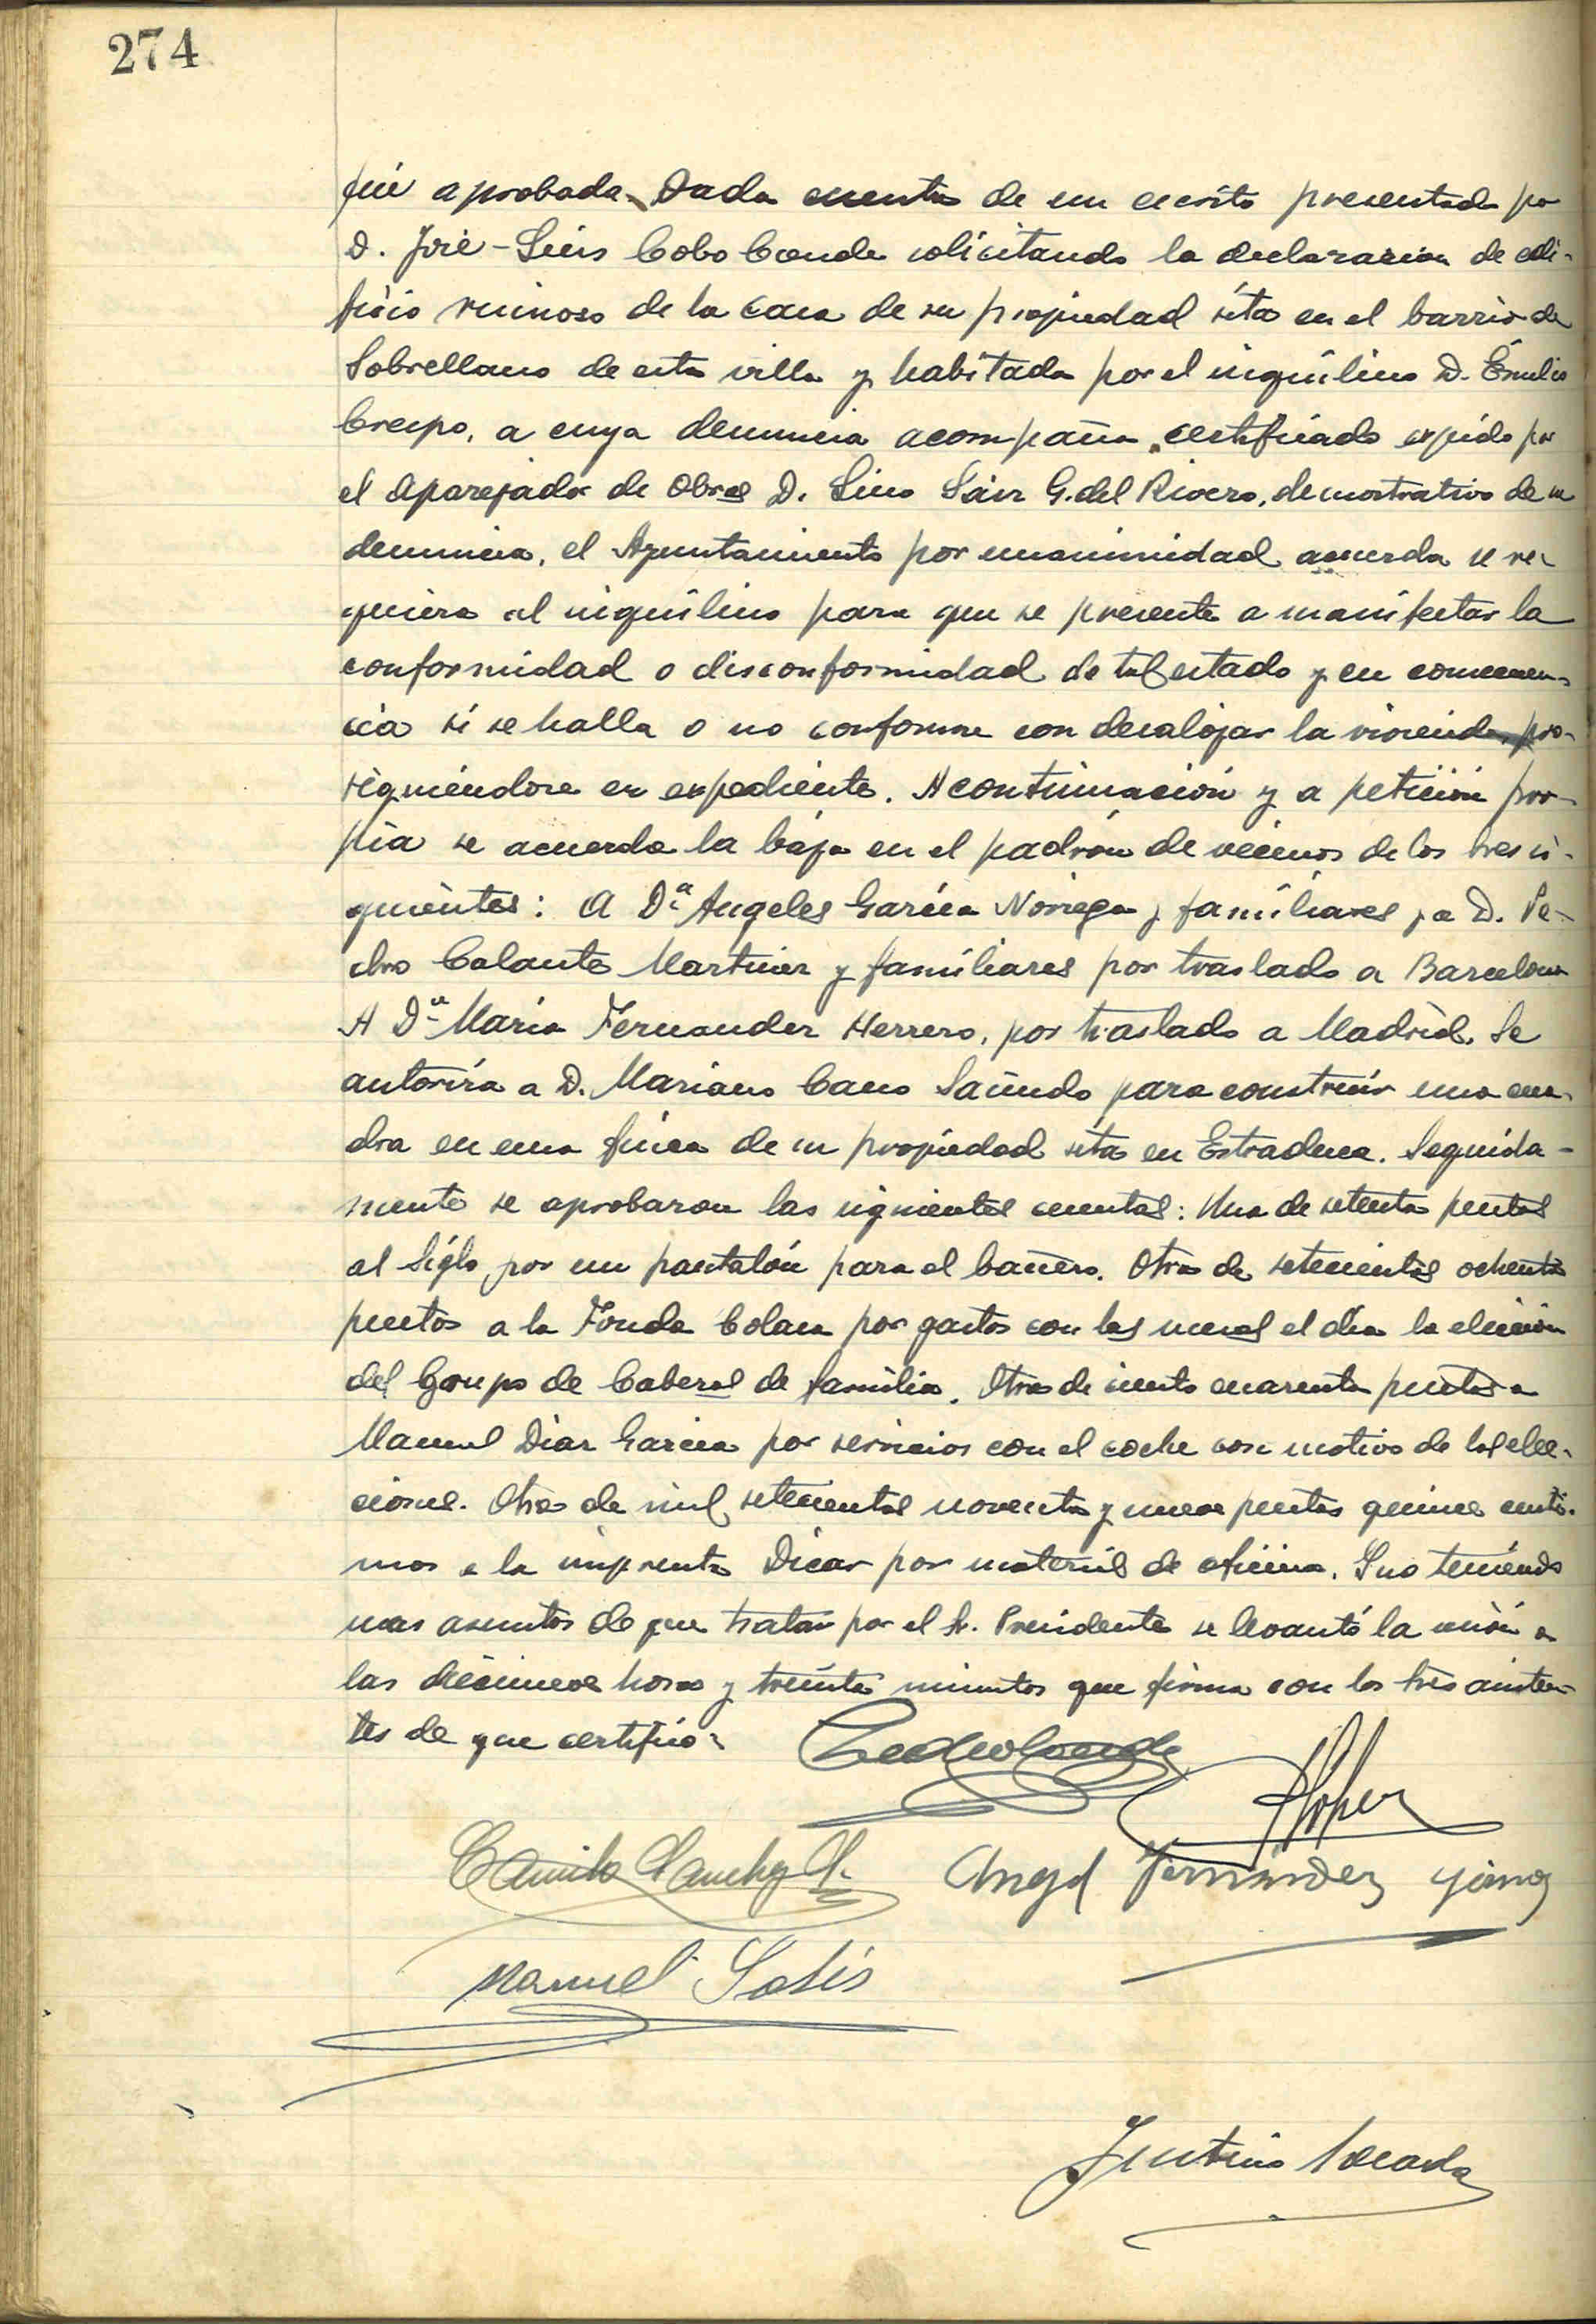 274
fué aprobada. Dada cuenta de un escrito presentado por
D. José-Luis Cobo Conde solicitando la declaración de edi-
ficio ruinoso de la casa de su propiedad sita en el barrio de
Sobrellano de esta villa y habitada por el inquilino D. Emilio
Crespo, a cuya denuncia acompaña certificado expedido por
el Aparejador de Obras D. Lino Sáiz G. del Rivero, demostrativo de su
denuncia, el Ayuntamiento por unanimidad acuerda se re-
quiera al inquilino para que se presente a manifestar la
conformidad o disconformidad de tal estado y en consecuen-
cia si se halla o no conforme con desalojar la vivienda, pro-
siguiéndose en expediente. A continuación y a petición pro-
pia se acuerda la baja en el padrón de vecinos de los tres si-
guientes: A Dª Angeles García Noriega y familiares y a D. Pe-
dro Calante Martinez y familiares por traslado a Barcelona
A Dª María Fernandez Herrero, por traslado a Madrid. Se
autoriza a D. Mariano Cano Sañudo para construir una cua-
dra en una finca de su propiedad sita en Estraduca. Seguida-
mente se aprobaron las siguientes cuentas: Una de setenta pesetas
al Siglo por un pantalón para el bañero. Otra de setecientas ochenta
pesetas a la Fonda Colasa por gastos con las mesas el día la elección
del Grupo de Cabezas de familia. Otra de ciento cuarenta pesetas a
Manuel Diaz Garcia por servicios con el coche con motivo de las elec-
ciones. Otra de mil setecientas noventa y nueve pesetas quince cénti-
mos a la imprenta Dicar por material de oficina. Y no teniendo
mas asuntos de que tratar por el Sr. Presidente se levantó la sesión a
las diecinueve horas y treinta minutos que firma con los tres asisten-
tes de que certifico.
Camilo Sanchez
Angel Fernández
Manuel Solís